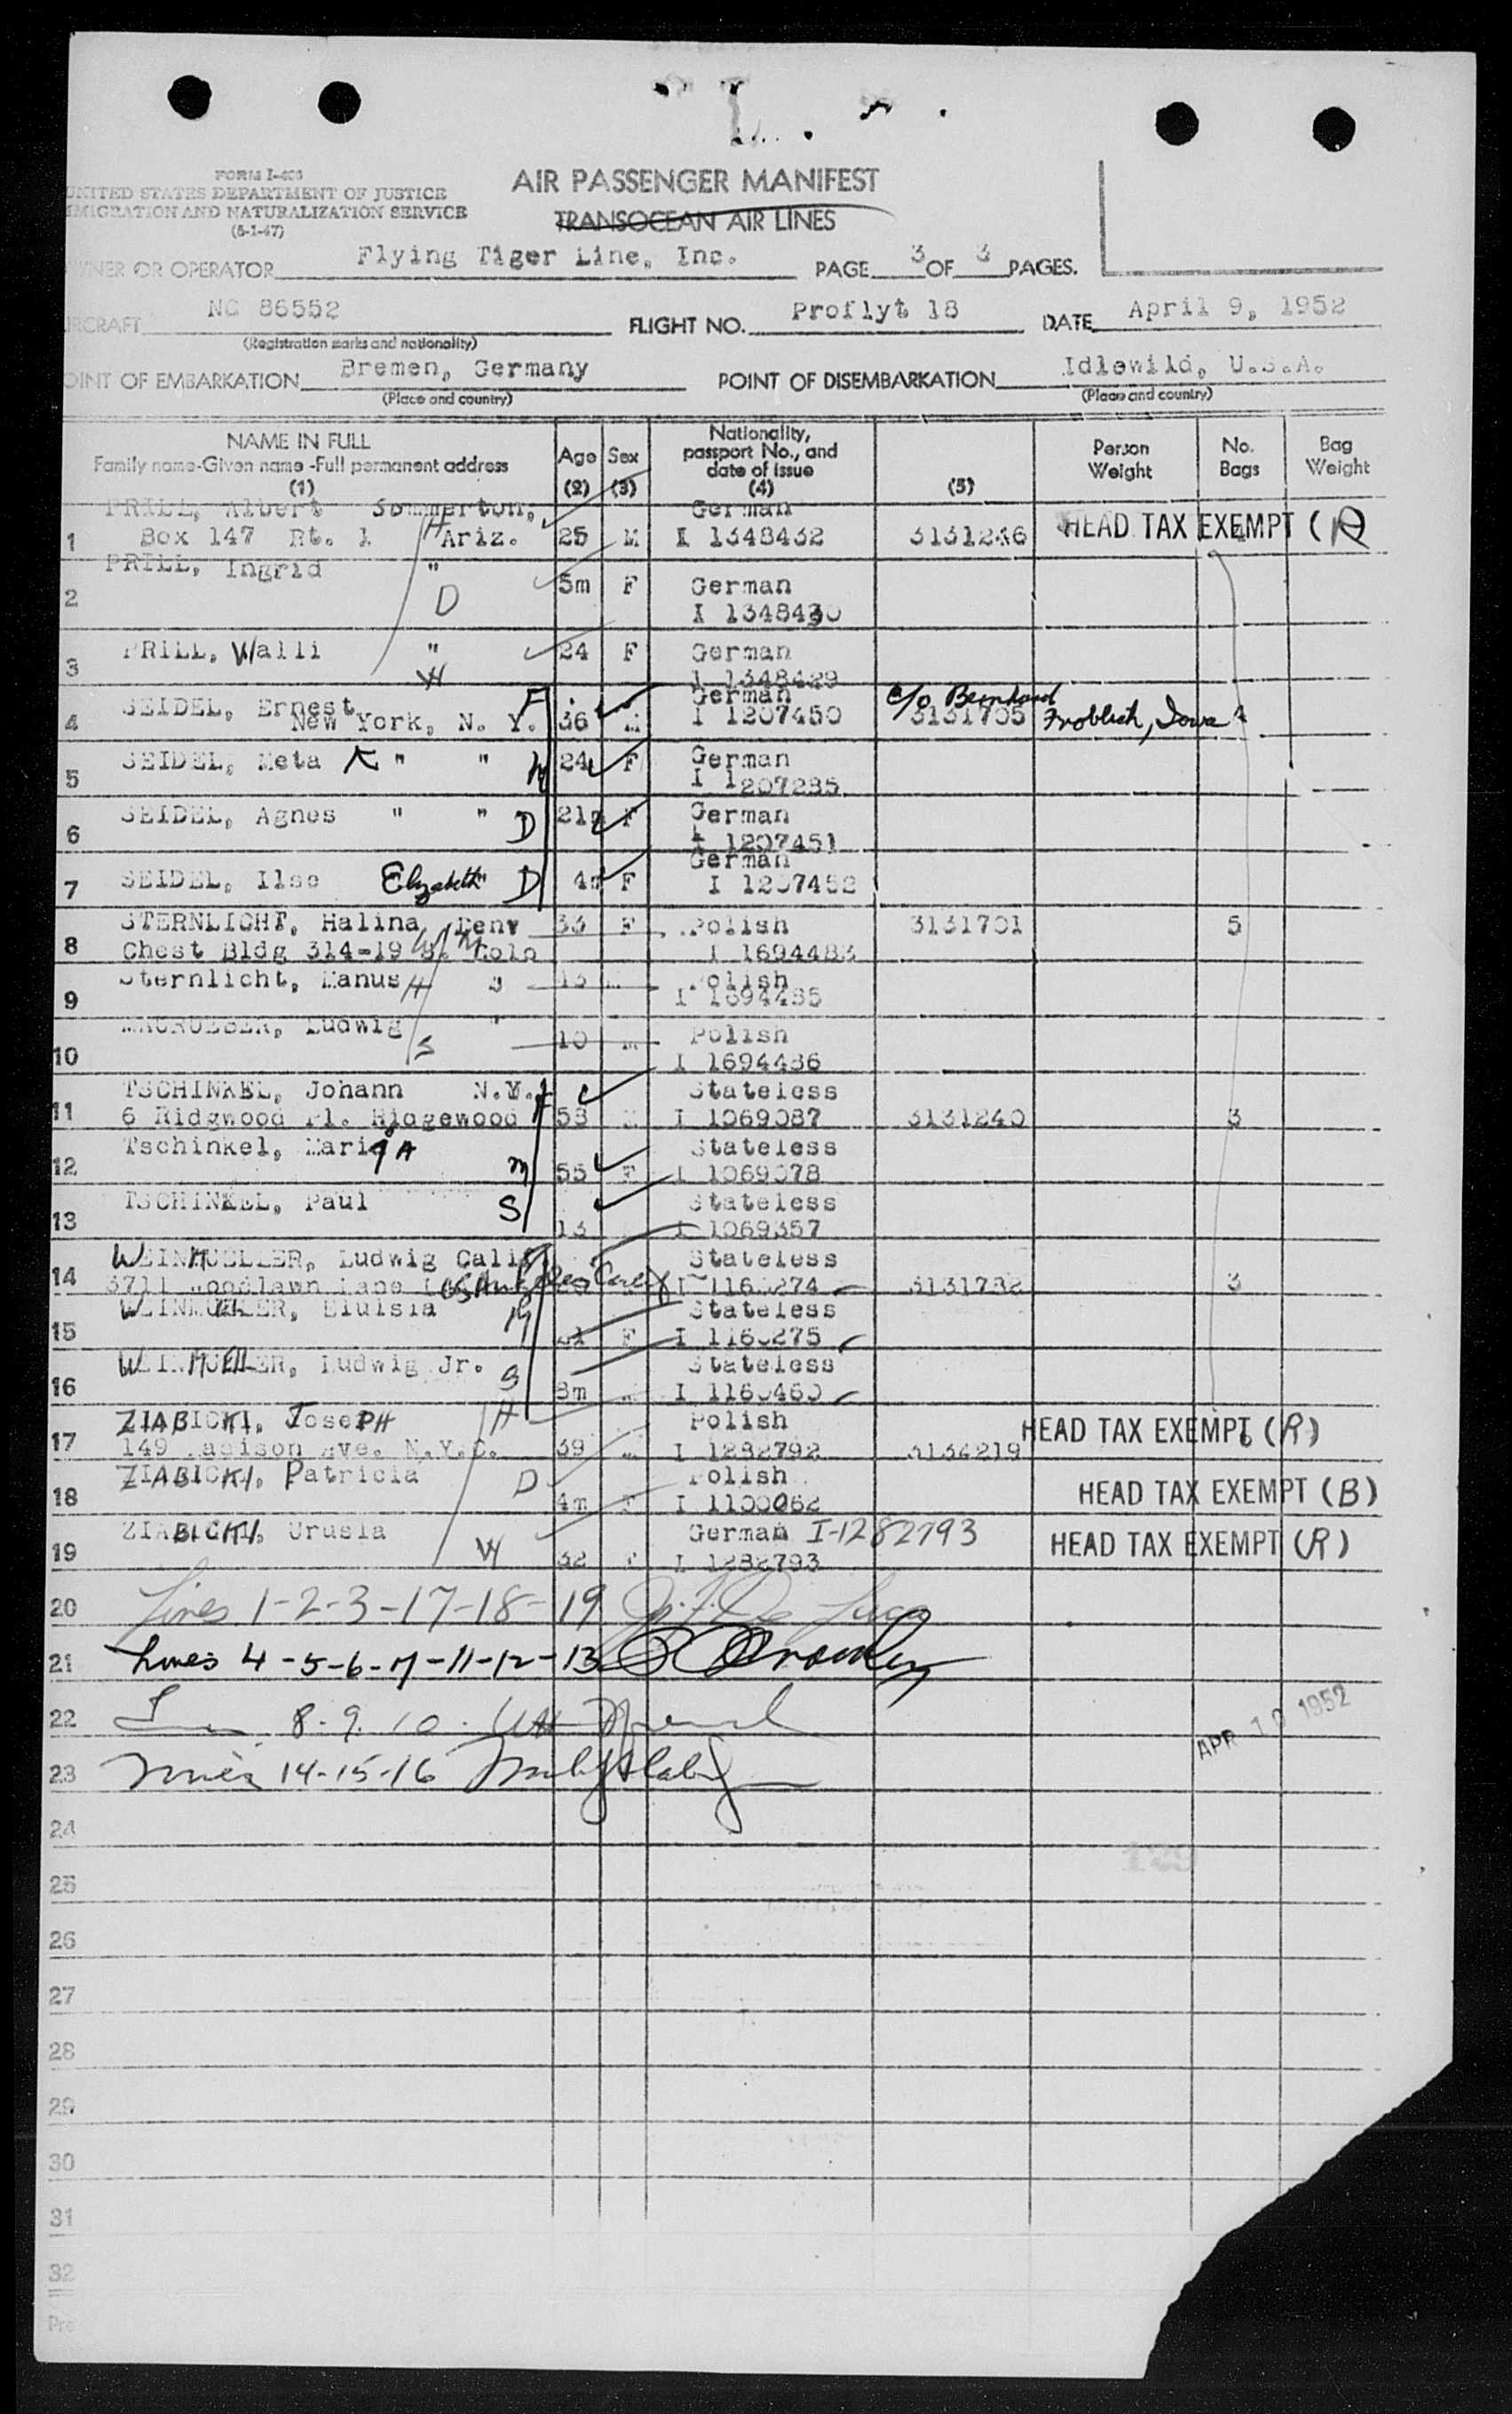 FORM I-466
UNITED STATES DEPARTMENT OF JUSTICE
IMMIGRATION AND NATURALIZATION SERVICE
(5-1-47)
AIR PASSENGER MANIFEST
TRANSOCEAN AIR LINES
OWNER OR OPERATOR Flying Tiger Line, Inc. PAGE 3 OF 3 PAGES.
AIRCRAFT NC 86552 FLIGHT NO. Proflyt 18 DATE April 9, 1952
(Registration marks and nationality)
POINT OF EMBARKATION Bremen, Germany POINT OF DISEMBARKATION Idlewild, U.S.A.
(Place and country) (Place and country)
NAME IN FULL Family name-Given name-Full permanent address (1) Age (2) Sex (3) Nationality, passport No., and date of issue (4) (5) Person Weight No. Bags Bag Weight
PRILL, Albert Sommerton, German
1 Box 147 Rt. 1 H Ariz. 25 M I 1348432 3131246 HEAD TAX EXEMPT (R)
PRILL, Ingrid "
2 D 5m F German
I 1348430
3 PRILL, Walli " 24 F German
W I 1348429
SEIDEL, Ernest F German c/o Bernhard
4 New York, N. Y. 36 M I 1207450 3131705 Froblich, Iowa 4
5 SEIDEL, Meta K " " W 24 F German
I 1207285
6 SEIDEL, Agnes " " D 21m F German
I 1207451
German
7 SEIDEL, Ilse Elizabeth D 4m F I 1207452
STERNLICHT, Halina Denv 33 F Polish 3131701 5
8 Chest Bldg 314-19 Colo I 1694483
9 Sternlicht, Manus H " M Polish
I 1694435
10 Ludwig " S 10 M Polish
I 1694436
TSCHINKEL, Johann N.Y. Stateless
11 6 Ridgwood Pl. Ridgewood 53 M I 1069087 3131240 3
Tschinkel, Maria Stateless
12 M 55 F I 1069078
TSCHINKEL, Paul Stateless
13 S 13 I 1069357
WEINMUELLER, Ludwig Calif Stateless
14 3711 Woodlawn Lane Los Angeles Calif 3131782 3
WEINMUELLER, Eluisia Stateless
15 F
WEINMUELLER, Ludwig Jr. Stateless
16 S 8m
ZIABICKI, JosePH H Polish
17 149 Madison Ave. N.Y.C. 39 M I 1282792 3134219 6 HEAD TAX EXEMPT (R)
ZIABICKI, Patricia D Polish
18 4m F I 1100062 HEAD TAX EXEMPT (B)
ZIABICKI, Ursula German I-1282793
19 W 32 F I 1282793 HEAD TAX EXEMPT (R)
20 Lines 1-2-3-17-18-19
21 Lines 4-5-6-7-11-12-13
22 8-9-10
23 14-15-16
APR 10 1952
24
129
25
26
27
28
29
30
31
32
Pre